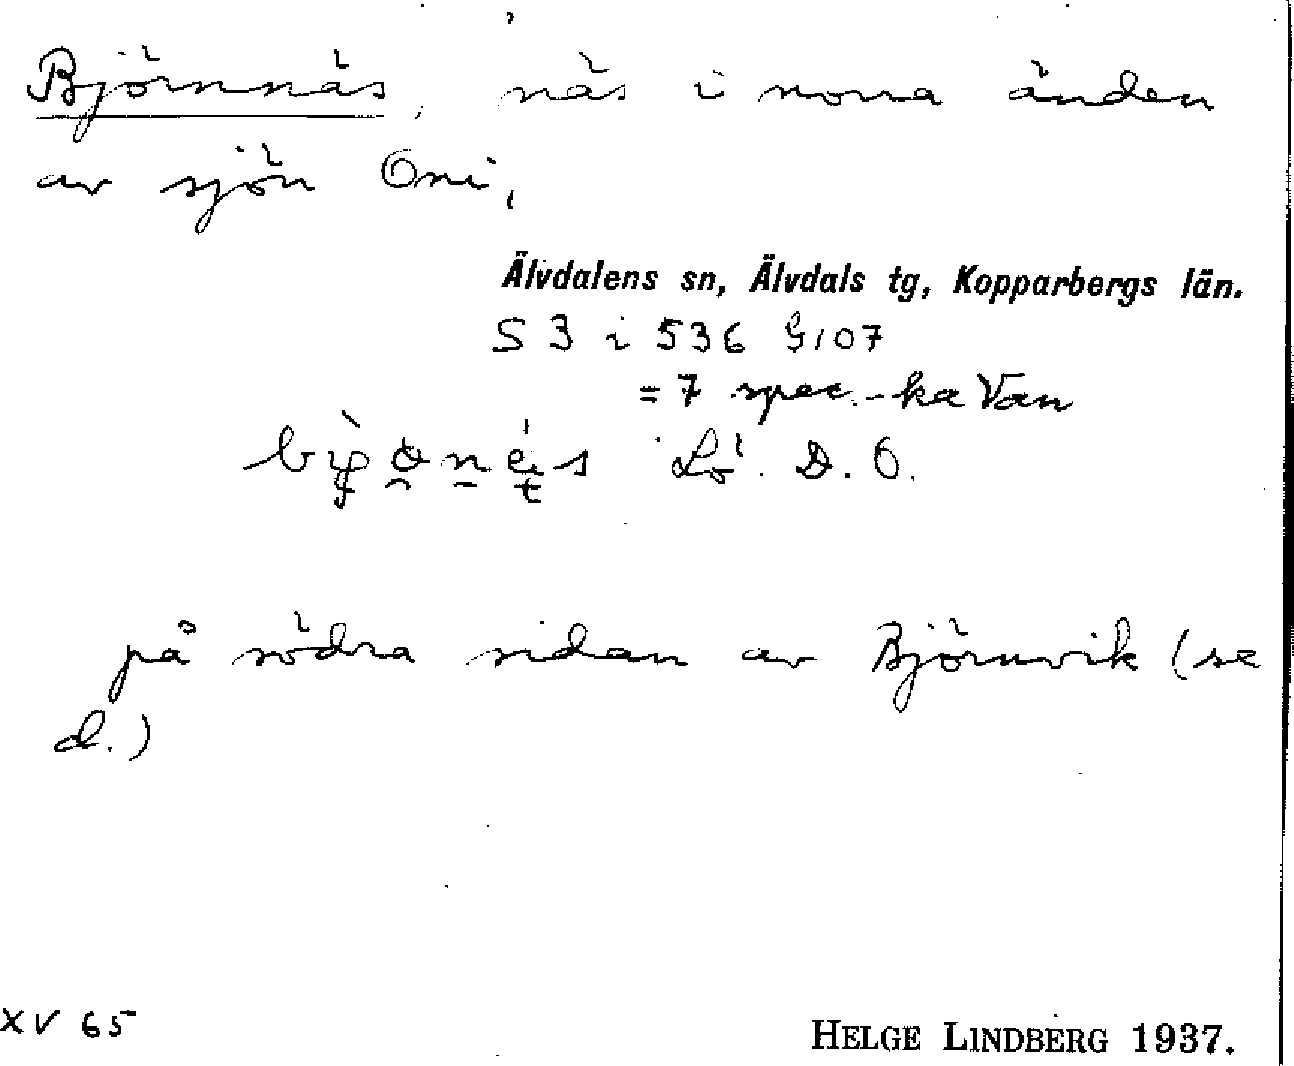 Björnnäs, näs i norra änden
av sjön Oni,
Älvdalens sn, Älvdals tg, Kopparbergs län.
S 3 i 536 G107
= 7 spec.-ka Van
Lö. D. O.
på södra sidan av Björnvik (se
d.)
XV 65
HELGE LINDBERG 1937.